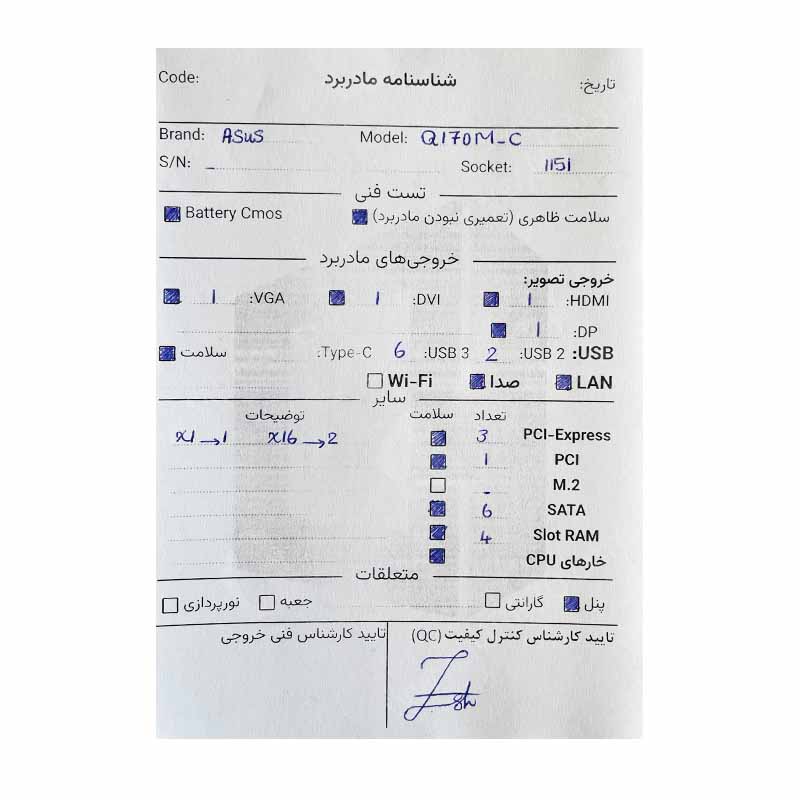 Code: شناسنامه مادربرد تاریخ:
Brand: ASUS Model: Q170M-C
S/N: - Socket: 1151
تست فنی
سلامت ظاهری (تعمیری نبودن مادربرد) Battery Cmos
خروجی‌های مادربرد
خروجی تصویر:
HDMI: 1 DVI: 1 VGA: 1
DP: 1
USB: USB 2: 2 USB 3: 6 Type-C: سلامت
LAN صدا Wi-Fi
سایر
تعداد سلامت توضیحات
PCI-Express 3 x16 → 2 x1 → 1
PCI 1
M.2 -
SATA 6
Slot RAM 4
خارهای CPU
متعلقات
پنل گارانتی جعبه نورپردازی
تایید کارشناس کنترل کیفیت (QC) تایید کارشناس فنی خروجی